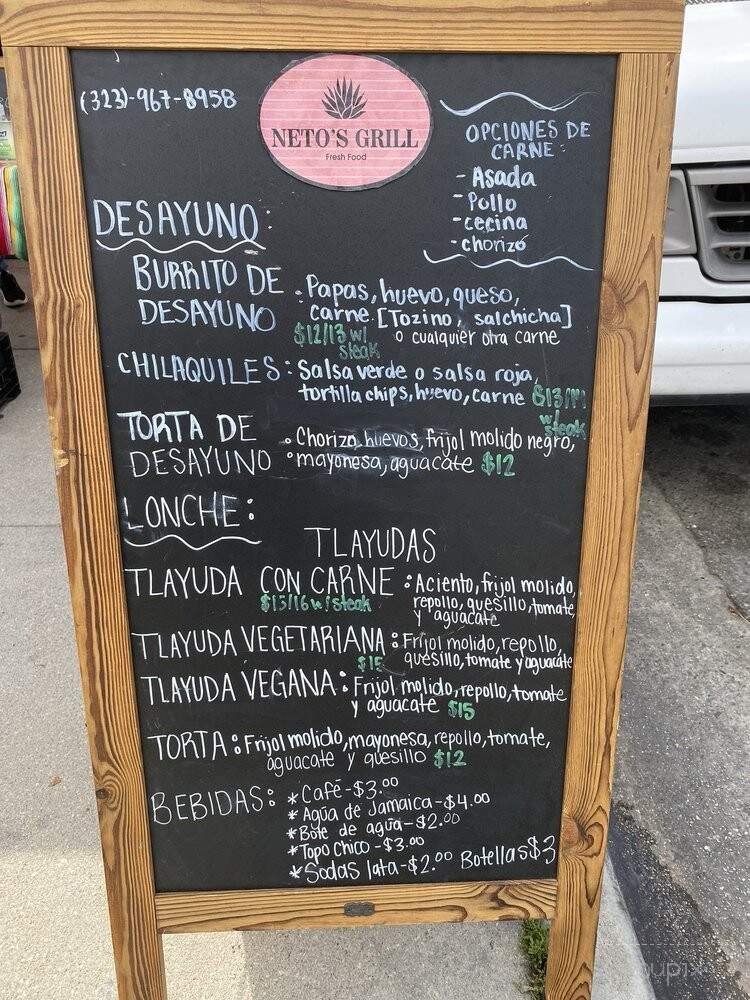 (323)-967-8958
NETO'S GRILL
Fresh Food
OPCIONES DE
CARNE:
- Asada
- Pollo
- cecina
- chorizo
DESAYUNO:
BURRITO DE
DESAYUNO
• Papas, huevo, queso,
carne [Tozino, salchicha]
$12/13 w/
steak
o cualquier otra carne
CHILAQUILES:
Salsa verde o salsa roja,
tortilla chips, huevo, carne
$13/
w/
steak
TORTA DE
DESAYUNO
• Chorizo, huevos, frijol molido negro,
mayonesa, aguacate $12
LONCHE:
TLAYUDAS
TLAYUDA CON CARNE:
$15/16 w/ steak
Aciento, frijol molido,
repollo, quesillo, tomate,
y aguacate
TLAYUDA VEGETARIANA:
$15
Frijol molido, repollo,
quesillo, tomate y aguacate
TLAYUDA VEGANA:
Frijol molido, repollo, tomate
y aguacate $15
TORTA: Frijol molido, mayonesa, repollo, tomate,
aguacate y quesillo $12
BEBIDAS:
* Café - $3.00
* Agua de Jamaica - $4.00
* Bote de agua - $2.00
* Topo Chico - $3.00
* Sodas lata - $2.00 Botellas $3